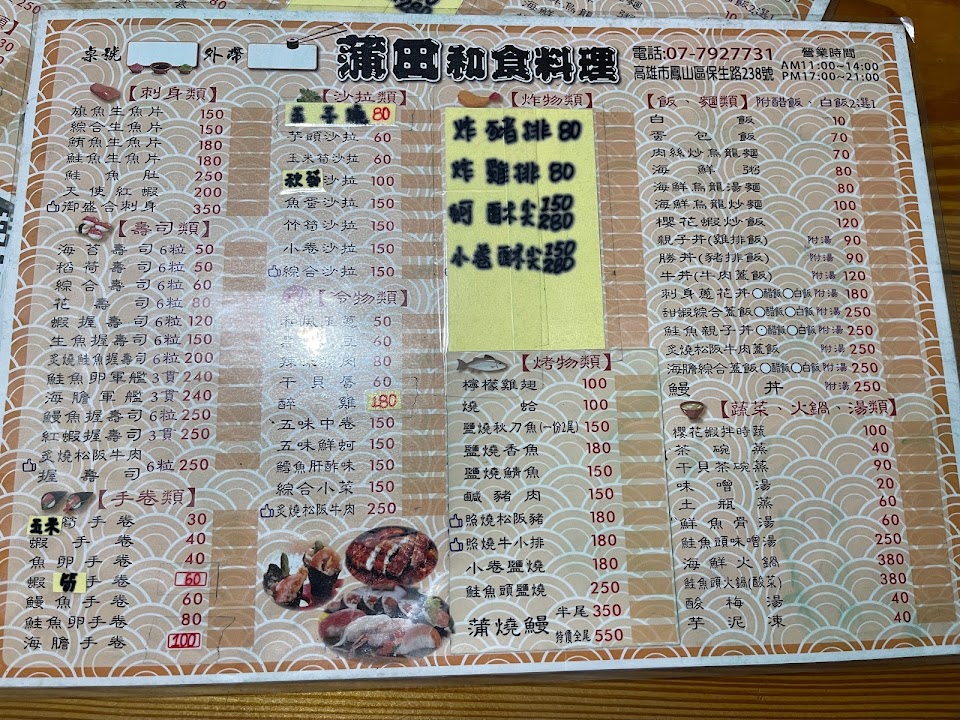 桌號 外帶 蒲田和食料理
電話:07-7927731
高雄市鳳山區保生路238號
營業時間
AM11:00~14:00
PM17:00~21:00
【刺身類】
旗魚生魚片 150
綜合生魚片 150
鮪魚生魚片 180
鮭魚生魚片 180
鮭魚肚 250
天使紅蝦 200
御盛合刺身 350
【壽司類】
海苔壽司6粒 50
稻荷壽司6粒 50
綜合壽司6粒 60
花壽司6粒 80
蝦握壽司6粒 120
生魚握壽司6粒 150
炙燒鮭魚握壽司6粒 200
鮭魚卵軍艦3貫 240
海膽軍艦3貫 240
鰻魚握壽司6粒 250
紅蝦握壽司3貫 250
炙燒松阪牛肉
握壽司 6粒 250
【手卷類】
玉米筍手卷 30
蝦手卷 40
魚卵手卷 40
蝦筍手卷 60
鰻魚手卷 60
鮭魚卵手卷 80
海膽手卷 100
【沙拉類】
80
芋頭沙拉 60
玉米筍沙拉 60
秋葵沙拉 100
魚蛋沙拉 150
竹筍沙拉 150
小卷沙拉 150
綜合沙拉 150
【冷物類】
50
60
肉 80
干貝唇 60
醉雞 180
五味中卷 150
五味鮮蚵 150
鱈魚肝酢味 150
綜合小菜 150
炙燒松阪牛肉 250
【炸物類】
炸豬排 80
炸雞排 80
蚵酥尖 150
280
小卷酥尖 150
280
【烤物類】
檸檬雞翅 100
燒蛤 100
鹽燒秋刀魚(一份2尾) 150
鹽燒香魚 150
鹽燒鯖魚 150
鹹豬肉 150
照燒松阪豬 180
照燒牛小排 180
小卷鹽燒 180
鮭魚頭鹽燒 250
蒲燒鰻 半尾 350
特價全尾 550
【飯、麵類】附醋飯、白飯2選1
白飯 10
蛋包飯 70
肉絲炒烏龍麵 70
海鮮粥 80
海鮮烏龍湯麵 80
海鮮烏龍炒麵 100
櫻花蝦炒飯 120
親子丼(雞排飯) 附湯 90
勝丼(豬排飯) 附湯 90
牛丼(牛肉蓋飯) 附湯 120
刺身蔥花丼○醋飯○白飯 附湯 180
甜蝦綜合蓋飯○醋飯○白飯 附湯 250
鮭魚親子丼○醋飯○白飯 附湯 250
炙燒松阪牛肉蓋飯 附湯 250
海膽綜合蓋飯○醋飯○白飯 附湯 250
鰻丼 附湯 250
【蔬菜、火鍋、湯類】
櫻花蝦拌時蔬 100
茶碗蒸 40
干貝茶碗蒸 90
味噌湯 20
土瓶蒸 60
鮮魚骨湯 60
鮭魚頭味噌湯 250
海鮮火鍋 380
鮭魚頭火鍋(酸菜) 380
酸梅湯 40
芋泥凍 40